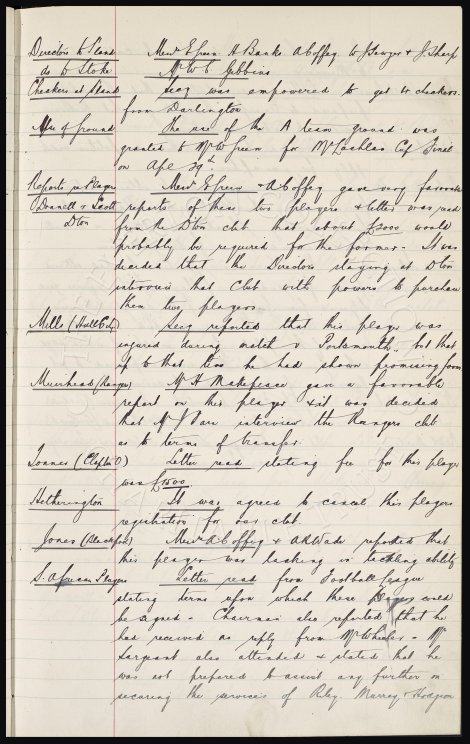 Directors to Stand Messrs E Green H Banks A Coffey W J Sawyer & J Sharp
do to Stoke Mr W C Gibbins
Checkers at Stand Secy was empowered to get 10 checkers
from Darlington
Use of Ground The use of the A team ground was
granted to Mr W Green for McLachlan Cup Final
on Apl 29th
Reports re Players Messrs E Green & A Coffey gave very favorable
Donnell & Scott reports of these two players & letter was read
Dton from the Dton club that about £3000 would
probably be required for the former. It was
decided that the Directors staying at Dton
interview that Club with powers to purchase
these two players
Mills (Hull City) Secy reported that this player was
injured during match v Portsmouth, but that
up to that time he had shown promising form
Muirhead (Rangers) Mr H Makepeace gave a favorable
report on this player & it was decided
that Mr interview the Rangers club
as to terms of transfer.
(Clapton O) Letter read stating fee for this player
was £1500
Hetherington It was agreed to cancel this players
registration for our club.
Jones (Blackpool) Messrs A Coffey & A R Wade reported that
this player was lacking in tackling ability
S. African Players Letter read from Football League
stating terms upon which these Players could
be signed - Chairman also reported that he
had received no reply from Mr Wheeler - Mr
Sargeant also attended & stated that he
was not prepared to assist any further in
securing the services of Riley Murray & Hodgson